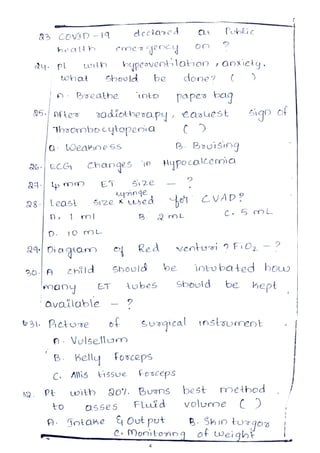 23 COVID-19 declared as Public
health emergency on ?
24. Pt with hyperventilation, anxiety.
what should be done? ( )
A. Breathe into paper bag
25. After radiotherapy, earliest sign of
Thrombocytopenia ( )
a. Weakness B. Bruising
26. ECG changes in Hypocalcemia
27. 4 mm ET size - ?
28. Least size syringe used for CVAD?
A. 1 ml B. 2 mL C. 5 mL
D. 10 mL
29. Diagram of Red venturi ? FiO2 - ?
30. A child should be intubated how
many ET tubes should be kept
available - ?
31. Picture of surgical instrument
A. Vulsellum
B. Kelly Forceps
C. Allis tissue Forceps
32. Pt with 20% Burns best method
to asses Fluid volume ( )
A. Intake & Output B. Skin turgor
C. Monitoring of weight
4